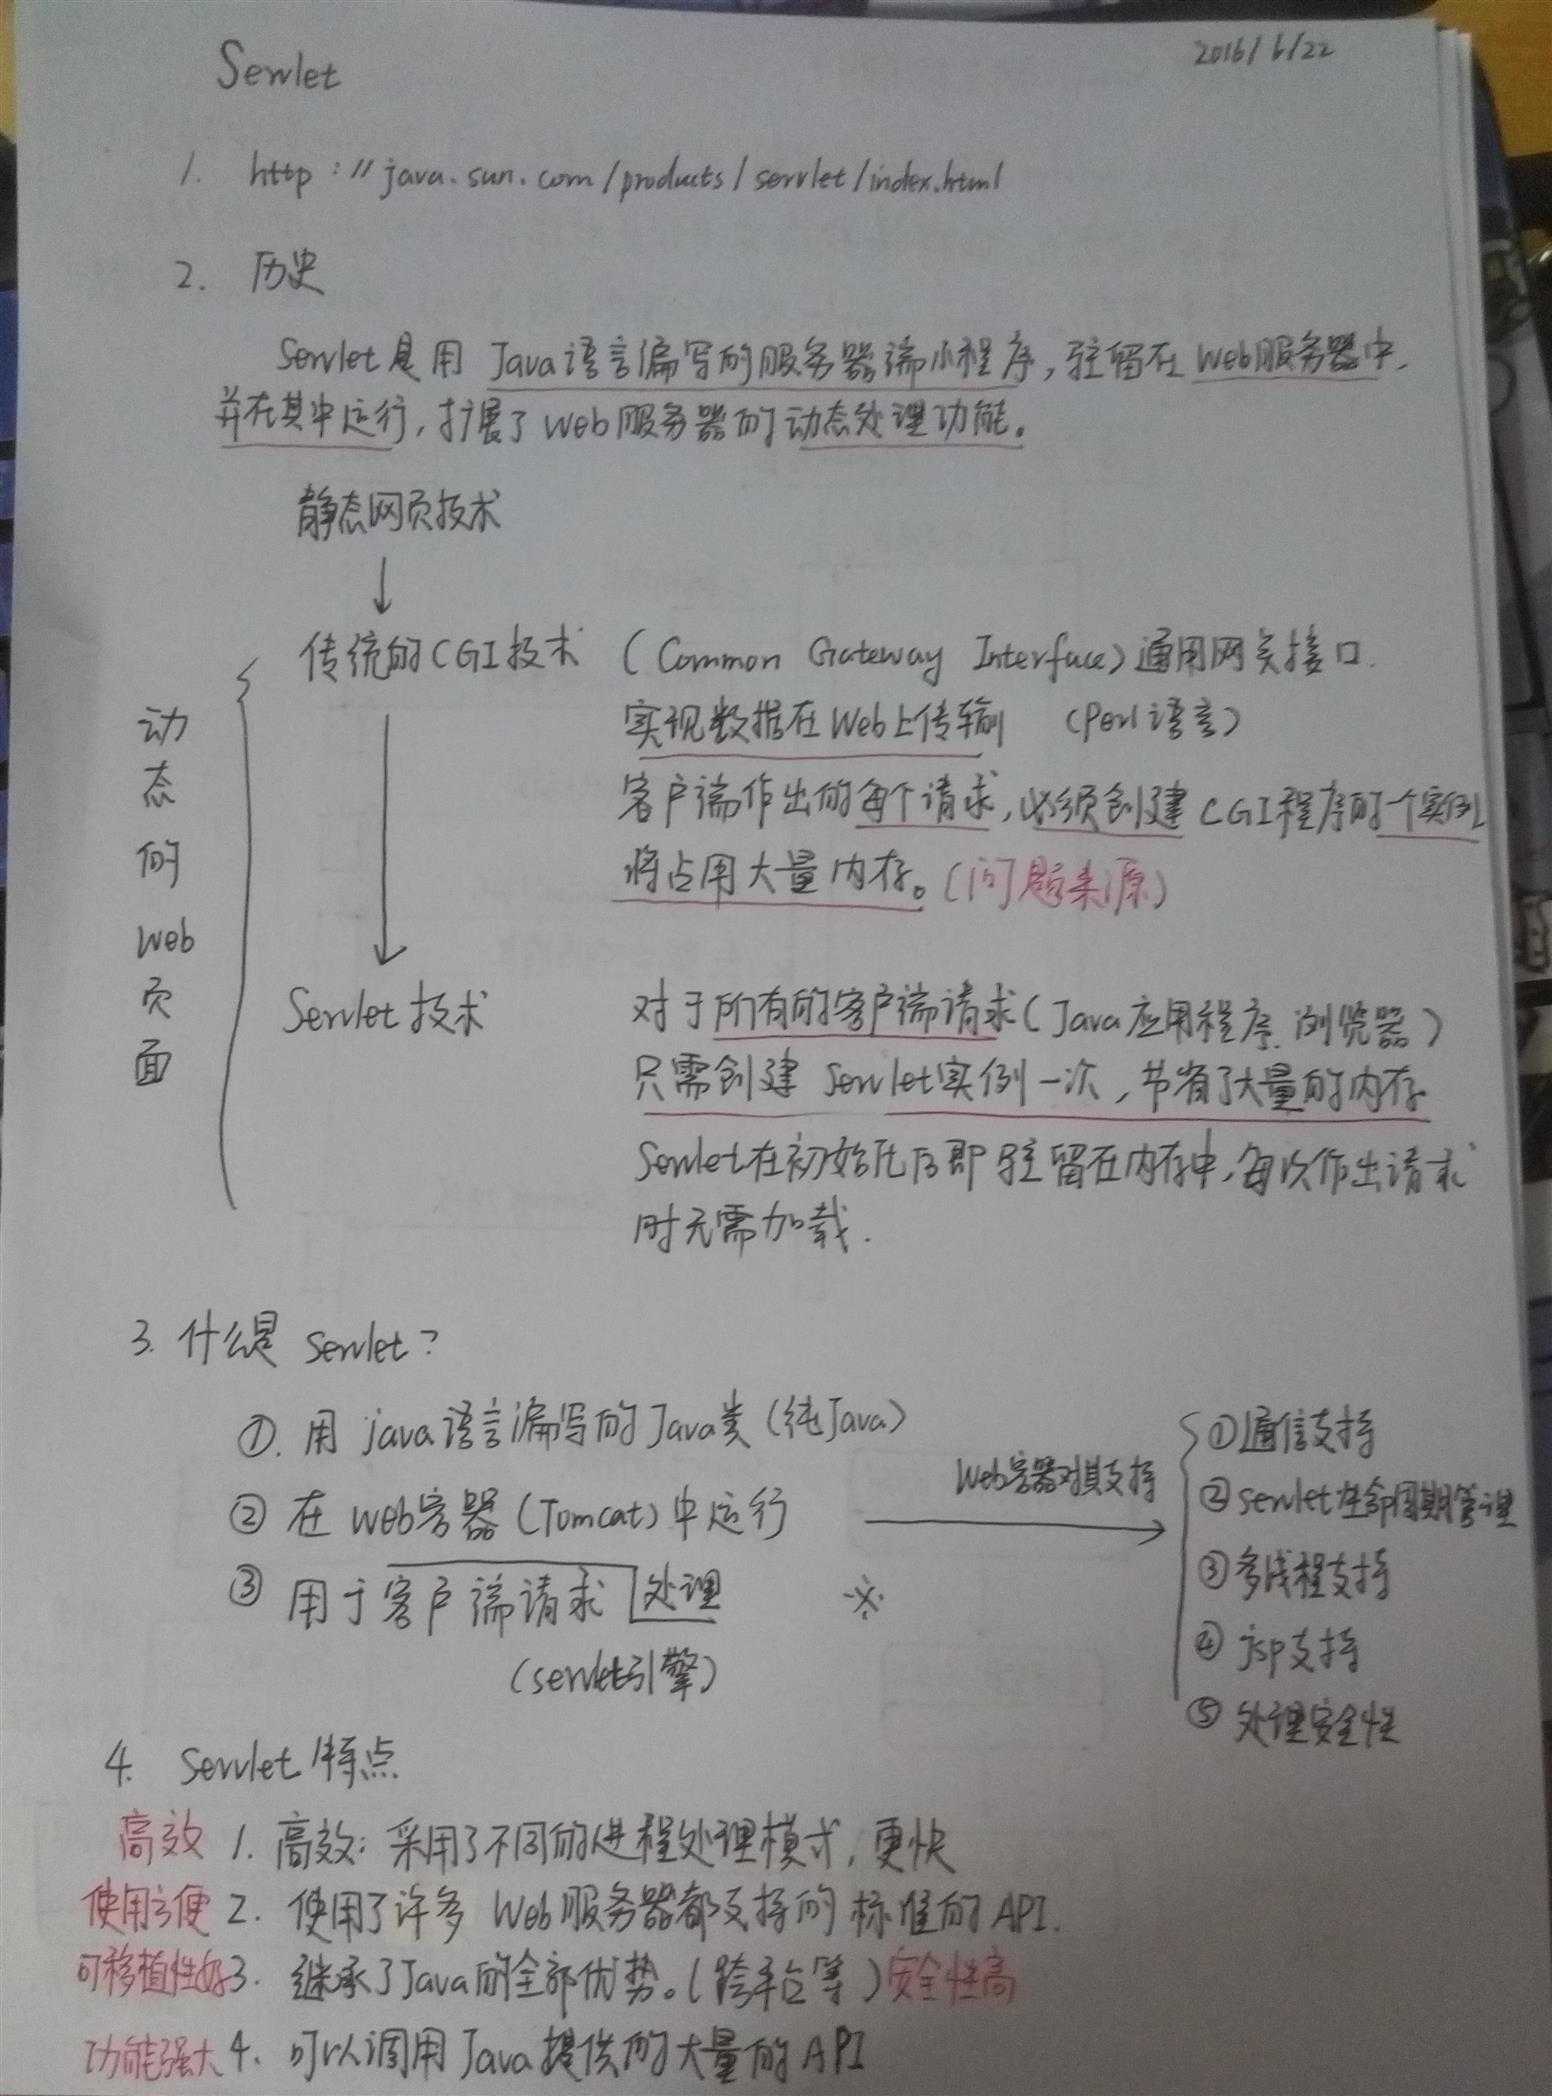 Servlet
2016/6/22
1. http://java.sun.com/products/servlet/index.html
2. 历史
Servlet是用 Java语言编写的服务器端小程序,驻留在Web服务器中,
并在其中运行,扩展了Web服务器的动态处理功能。
静态网页技术
动态的Web页面
传统的CGI技术 (Common Gateway Interface)通用网关接口.
实现数据在Web上传输 (Perl语言)
客户端作出的每个请求,必须创建CGI程序的一个实例
将占用大量内存。(问题来源)
Servlet技术 对于所有的客户端请求(Java应用程序、浏览器)
只需创建 Servlet实例一次,节省了大量的内存
Servlet在初始化后即驻留在内存中,每次作出请求
时无需加载.
3. 什么是 servlet?
①. 用java语言编写的Java类(纯Java)
② 在web容器(Tomcat)中运行
③ 用于客户端请求处理
(servlet引擎)
Web容器对其支持
※
①通信支持
②servlet生命周期管理
③多线程支持
④jsp支持
⑤处理安全性
4. Servlet特点
高效 1. 高效:采用了不同的进程处理模式,更快
使用方便 2. 使用了许多 Web服务器都支持的标准的API.
可移植性好 3. 继承了Java的全部优势。(跨平台等)安全性高
功能强大 4. 可以调用Java提供的大量的API